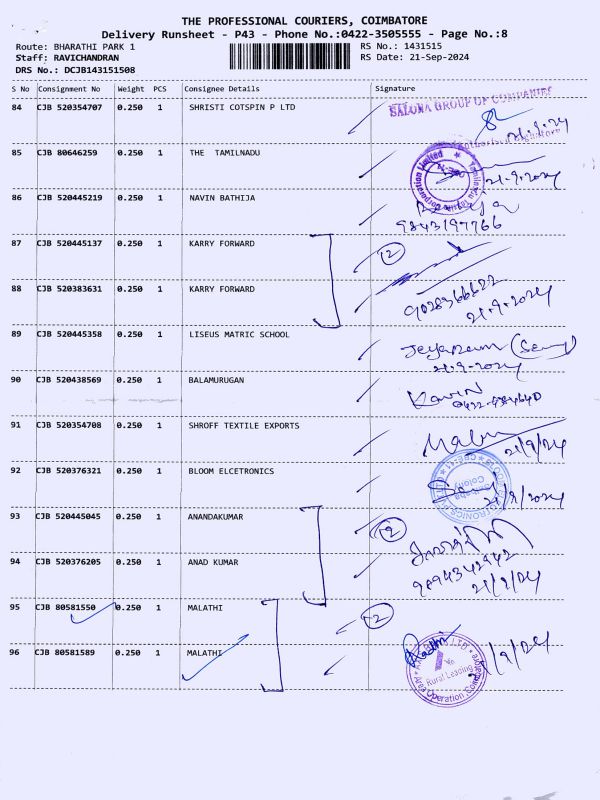 THE PROFESSIONAL COURIERS, COIMBATORE
Delivery Runsheet - P43 - Phone No.:0422-3505555 - Page No.:8
Route: BHARATHI PARK 1 RS No.: 1431515
Staff: RAVICHANDRAN RS Date: 21-Sep-2024
DRS No.: DCJB143151508
S No Consignment No Weight PCS Consignee Details Signature
84 CJB 520354707 0.250 1 SHRISTI COTSPIN P LTD
SALONA GROUP OF COMPANIES
21.9.24
Authorised Signatory
85 CJB 80646259 0.250 1 THE TAMILNADU
21.9.2024
86 CJB 520445219 0.250 1 NAVIN BATHIJA
9843197766
87 CJB 520445137 0.250 1 KARRY FORWARD
2
88 CJB 520383631 0.250 1 KARRY FORWARD
9028366622
21.9.2024
89 CJB 520445358 0.250 1 LISEUS MATRIC SCHOOL
Jeyaram
21.9.2024
90 CJB 520438569 0.250 1 BALAMURUGAN
Kavin
91 CJB 520354708 0.250 1 SHROFF TEXTILE EXPORTS
21/9/24
92 CJB 520376321 0.250 1 BLOOM ELCETRONICS
21/9/2024
93 CJB 520445045 0.250 1 ANANDAKUMAR
2
94 CJB 520376205 0.250 1 ANAD KUMAR
9894342942
21/9/24
95 CJB 80581550 0.250 1 MALATHI
2
96 CJB 80581589 0.250 1 MALATHI
Rural Leasing
Area Operation